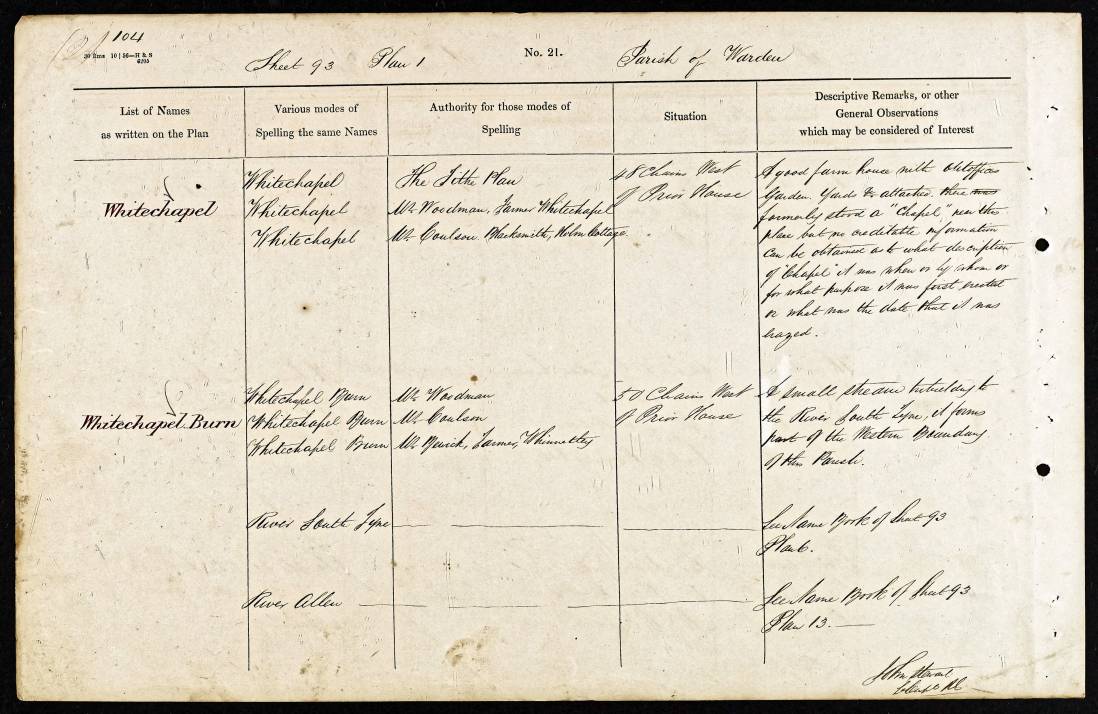 104
30 Rms 10 | 56—H & S
6205
Sheet 93 Plan 1
No. 21.
Parish of Warden
List of Names
as written on the Plan
Various modes of
Spelling the same Names
Authority for those modes of
Spelling
Situation
Descriptive Remarks, or other
General Observations
which may be considered of Interest
Whitechapel
Whitechapel
Whitechapel
Whitechapel
The Tithe Plan
Mr. Woodman, Farmer Whitechapel
Mr. Coulson Blacksmith, Helm Cottage
48 Chains West
of Prior House
A good farm house with outoffices
Garden. Yard &c attached. there was
formerly stood a "Chapel" near this
place but no creditable information
can be obtained as to what description
of "Chapel" it was when or by whom or
for what purpose it was first erected
or what was the date that it was
erazed.
Whitechapel Burn
Whitechapel Burn
Whitechapel Burn
Whitechapel Burn
Mr. Woodman
Mr. Coulson
Mr. Farmer, Whinnetley
50 Chains West
of Prior House
A small stream tributary to
the River South Tyne, it forms
part of the Western Boundary
of this Parish.
River South Tyne
See Name Book of Sheet 93
Plan 6.
River Allen
See Name Book of Sheet 93
Plan 13.
John Stewart